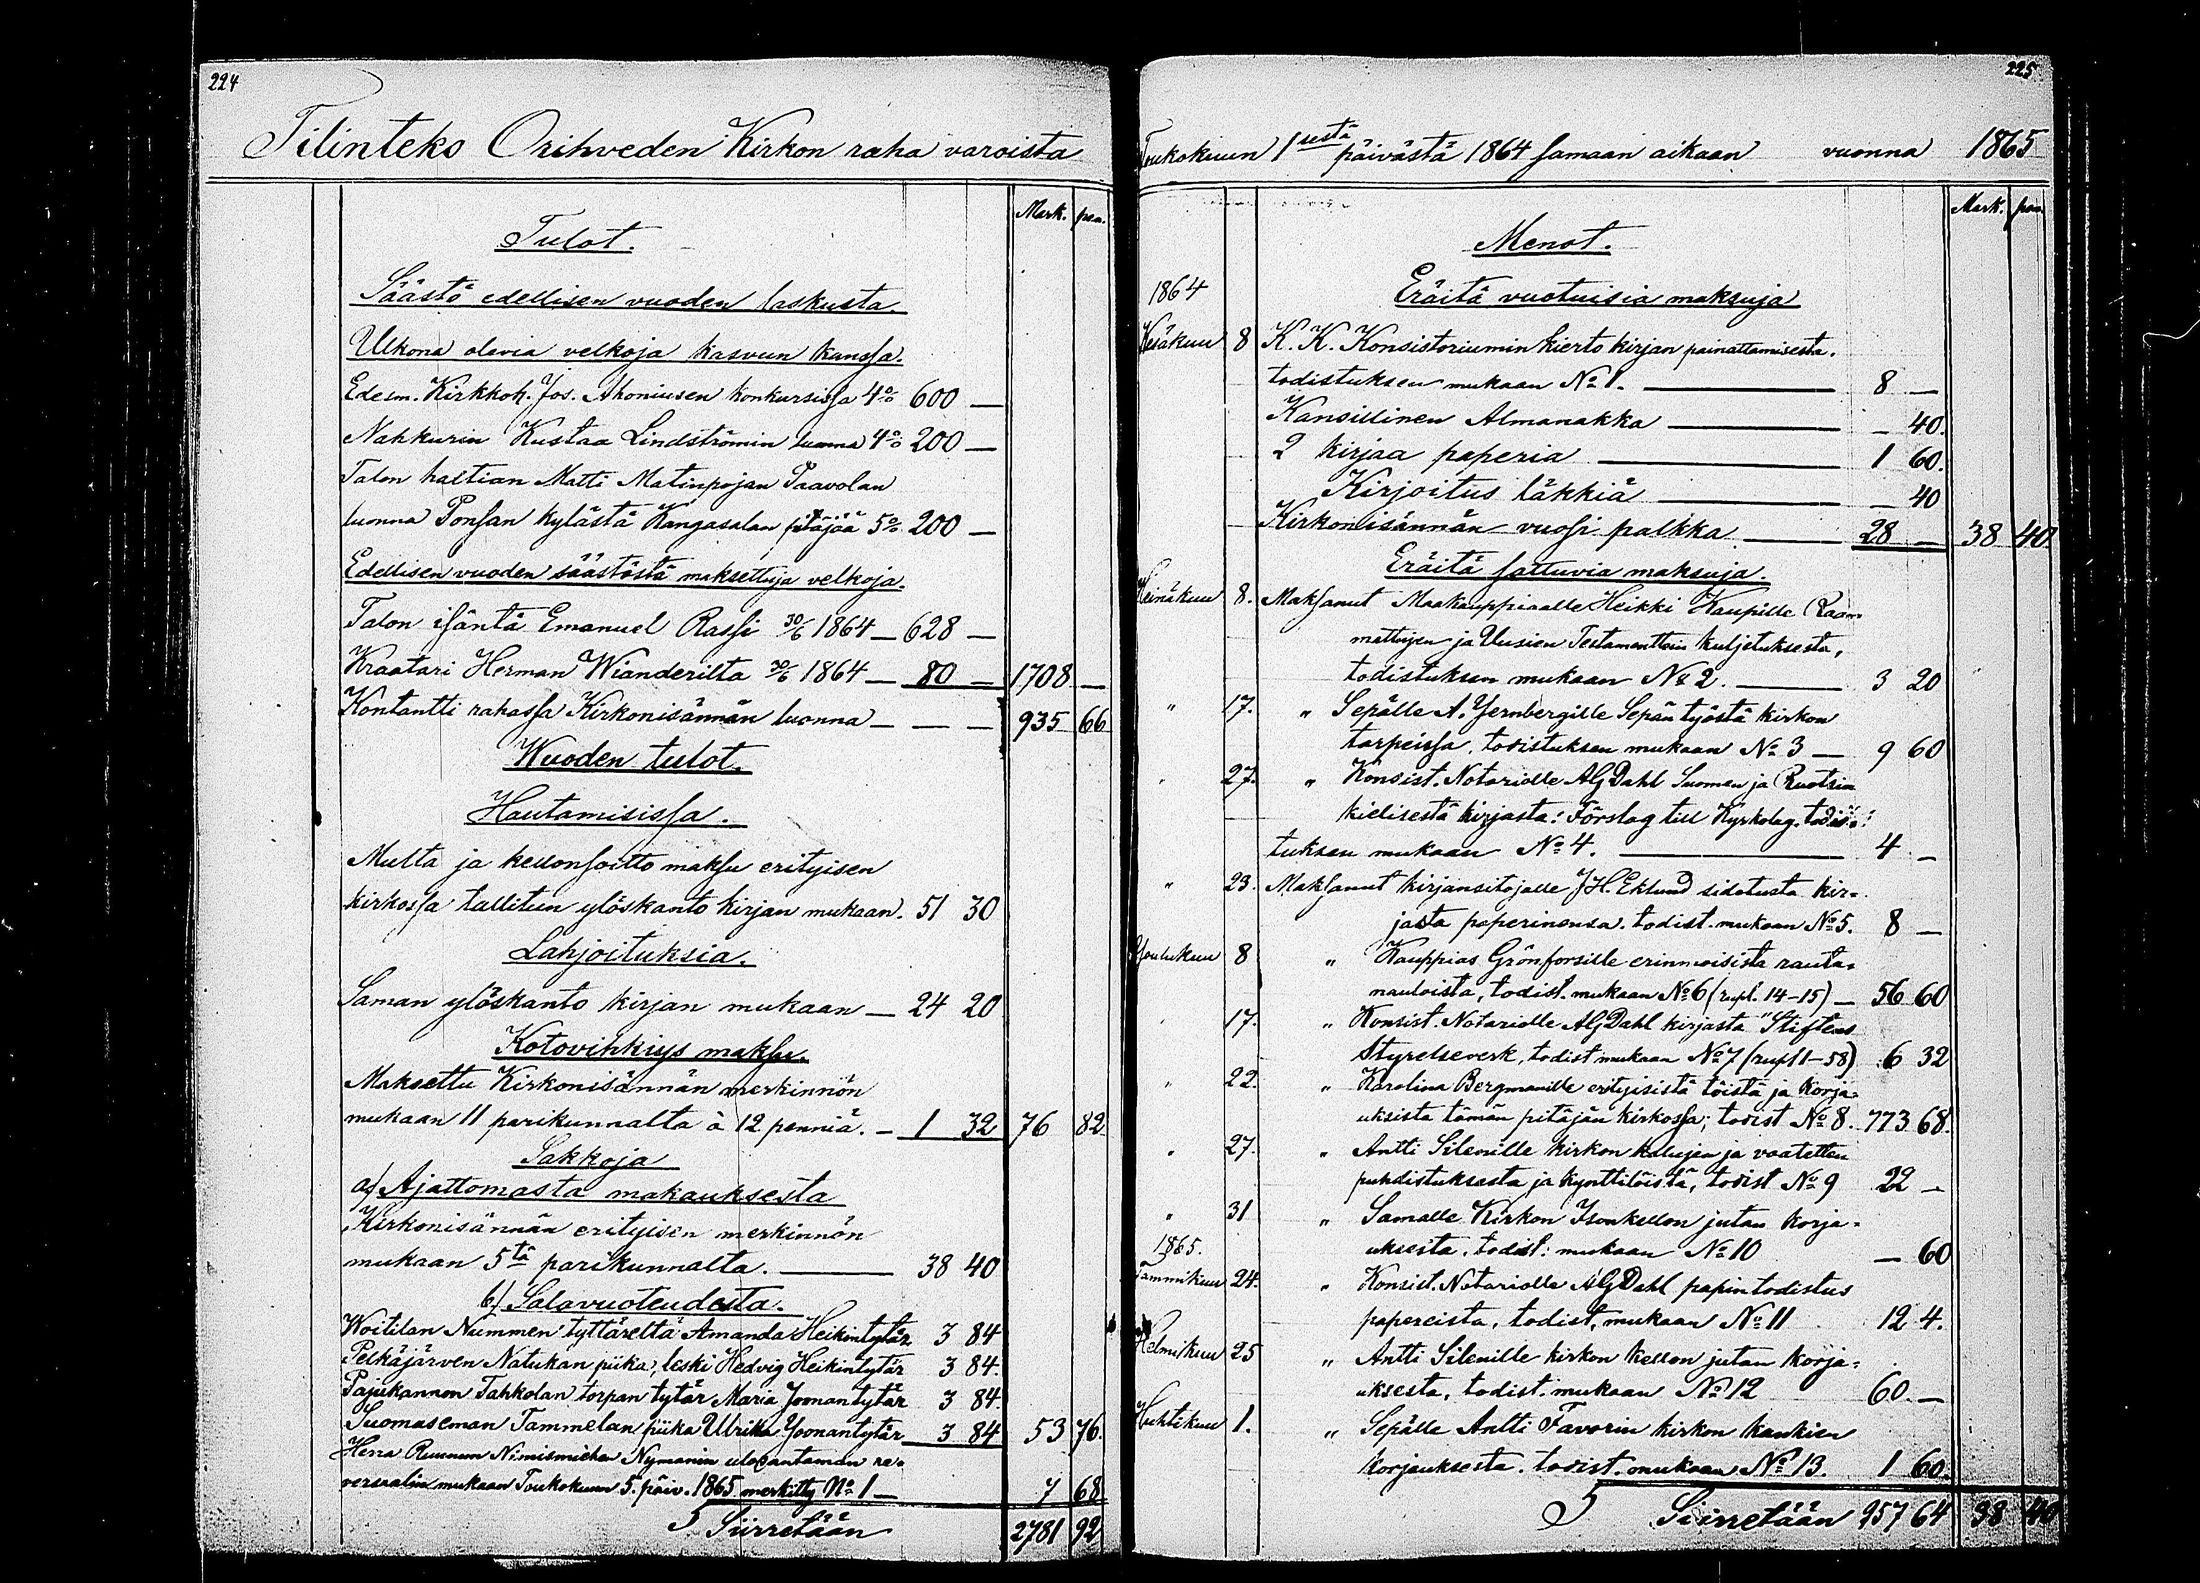 224
Tilinteko Orihveden Kirkon raha varoista
Mark. pen.
Tulot.
Säästö edellisen vuoden laskusta.
Ulkona olevia velkoja kasvun kanssa.
Edesm. Kirkkoh. Jos. Ahoniusen konkursissa 4% 600 —
Nahkurin Kustaa Lindströmin luonna 4% 200 —
Talon haltian Matti Matinpojan Paavolan
luonna Ponsan kylästä Kangasalan pitäjää 5% 200 —
Edellisen vuoden säästöstä maksettuja velkoja.
Talon isäntä Emanuel Rassi 30/6 1864 — 628 —
Kraatari Herman Wianderilta 30/6 1864 — 80 — 1708 —
Kontantti rahassa Kirkonisännän luonna — — — 935 66
Wuoden tulot.
Hautamisissa.
Multa ja kellonsoitto maksu erityisen
kirkossa tallitun ylöskanto kirjan mukaan. 51 30
Lahjoituksia.
Saman ylöskanto kirjan mukaan — 24 20
Kotovihkiys maksu.
Maksettu Kirkonisännän merkinnön
mukaan 11 parikunnalta à 12 penniä. — 1 32 76 82
Sakkoja
a) Ajattomasta makauksesta
Kirkonisännän erityisen merkinnön
mukaan 5tä parikunnalta. — 38 40
b) Salavuoteudesta.
Woitilan Nummen tyttäreltä Amanda Heikintytär 3 84
Pelkäjärven Natukan piika, leski Hedvig Heikintytär 3 84.
Pajukannon Tahkolan torpan tytär Maria Joonantytär 3 84.
Suomaseman Tammelan piika Ulrika Joonantytär 3 84 53 76.
Herra Ruunun Nimismiehen Nymanin ulosantaman re-
versaalin mukaan Toukokuun 5. päiv. 1865 merkitty No 1 — 7 68
Siirretään 2781 92
225
Toukokuun 1sestä päivästä 1864 samaan aikaan vuonna 1865
Mark. pen
Menot.
1864 Eräitä vuotuisia maksuja
Kesäkuu 8 K. K. Konsistoriumin kierto kirjan painattamisesta.
todistuksen mukaan No 1. — 8 —
Kansillinen Almanakka — — 40.
2 kirjaa paperia — 1 60.
Kirjoitus läkkiä — — 40
Kirkonisännän vuosi palkka — 28 — 38 40.
Eräitä sattuvia maksuja.
Heinäkuu 8. Maksanut Maakauppiaalle Heikki Kaupille Raam-
mattujen ja Uusien Testamenttein kuljetuksesta,
todistuksen mukaan No 2. — 3 20
" 17. " Sepälle A. Jernbergille Sepän työstä kirkon
tarpeissa, todistuksen mukaan No 3 — 9 60
" 27. " Konsist. Notariolle AG Dahl Suomen ja Ruotsin
kielisestä kirjasta: Förslag till Kyrkolag. todis-
tuksen mukaan No 4. — 4 —
" 23. Maksanut kirjansitojalle J H. Eklund sidotusta kir-
jasta paperinensa. todist. mukaan No 5. 8 —
Joulukuu 8 " Kauppias Grönforsille erinnäisistä rauta-
nauloista, todist. mukaan No 6 (rupl. 14-15) — 56 60
" 17. " Konsist. Notariolle AG Dahl kirjasta "Stiftens
Styrelseverk, todist mukaan No 7 (rupl 1-58) 6 32
" 22. " Karolina Bergmanille erityisistä töistä ja korja-
uksista tämän pitäjän kirkossa; todist No 8. 773 68.
" 27. " Antti Silenille kirkon kalujen ja vaatetten
puhdistuksesta ja kynttilöistä, todist No 9 22 —
" 31 " Samalle Kirkon Isonkellon jutan korja-
uksesta. todist: mukaan No 10 — 60
1865.
Tammikuu 24. " Konsist. Notariolle AG Dahl papintodistus
papereista, todist, mukaan No 11 12 4.
Helmikuu 25 " Antti Silenille kirkon kellon jutan korja-
uksesta, todist. mukaan No 12 60. —
Huhtikuu 1. " Sepälle Antti Favorin kirkon kankien
korjauksesta. todist. mukaan No 13. 1 60.
Siirretään 957 64 38 40